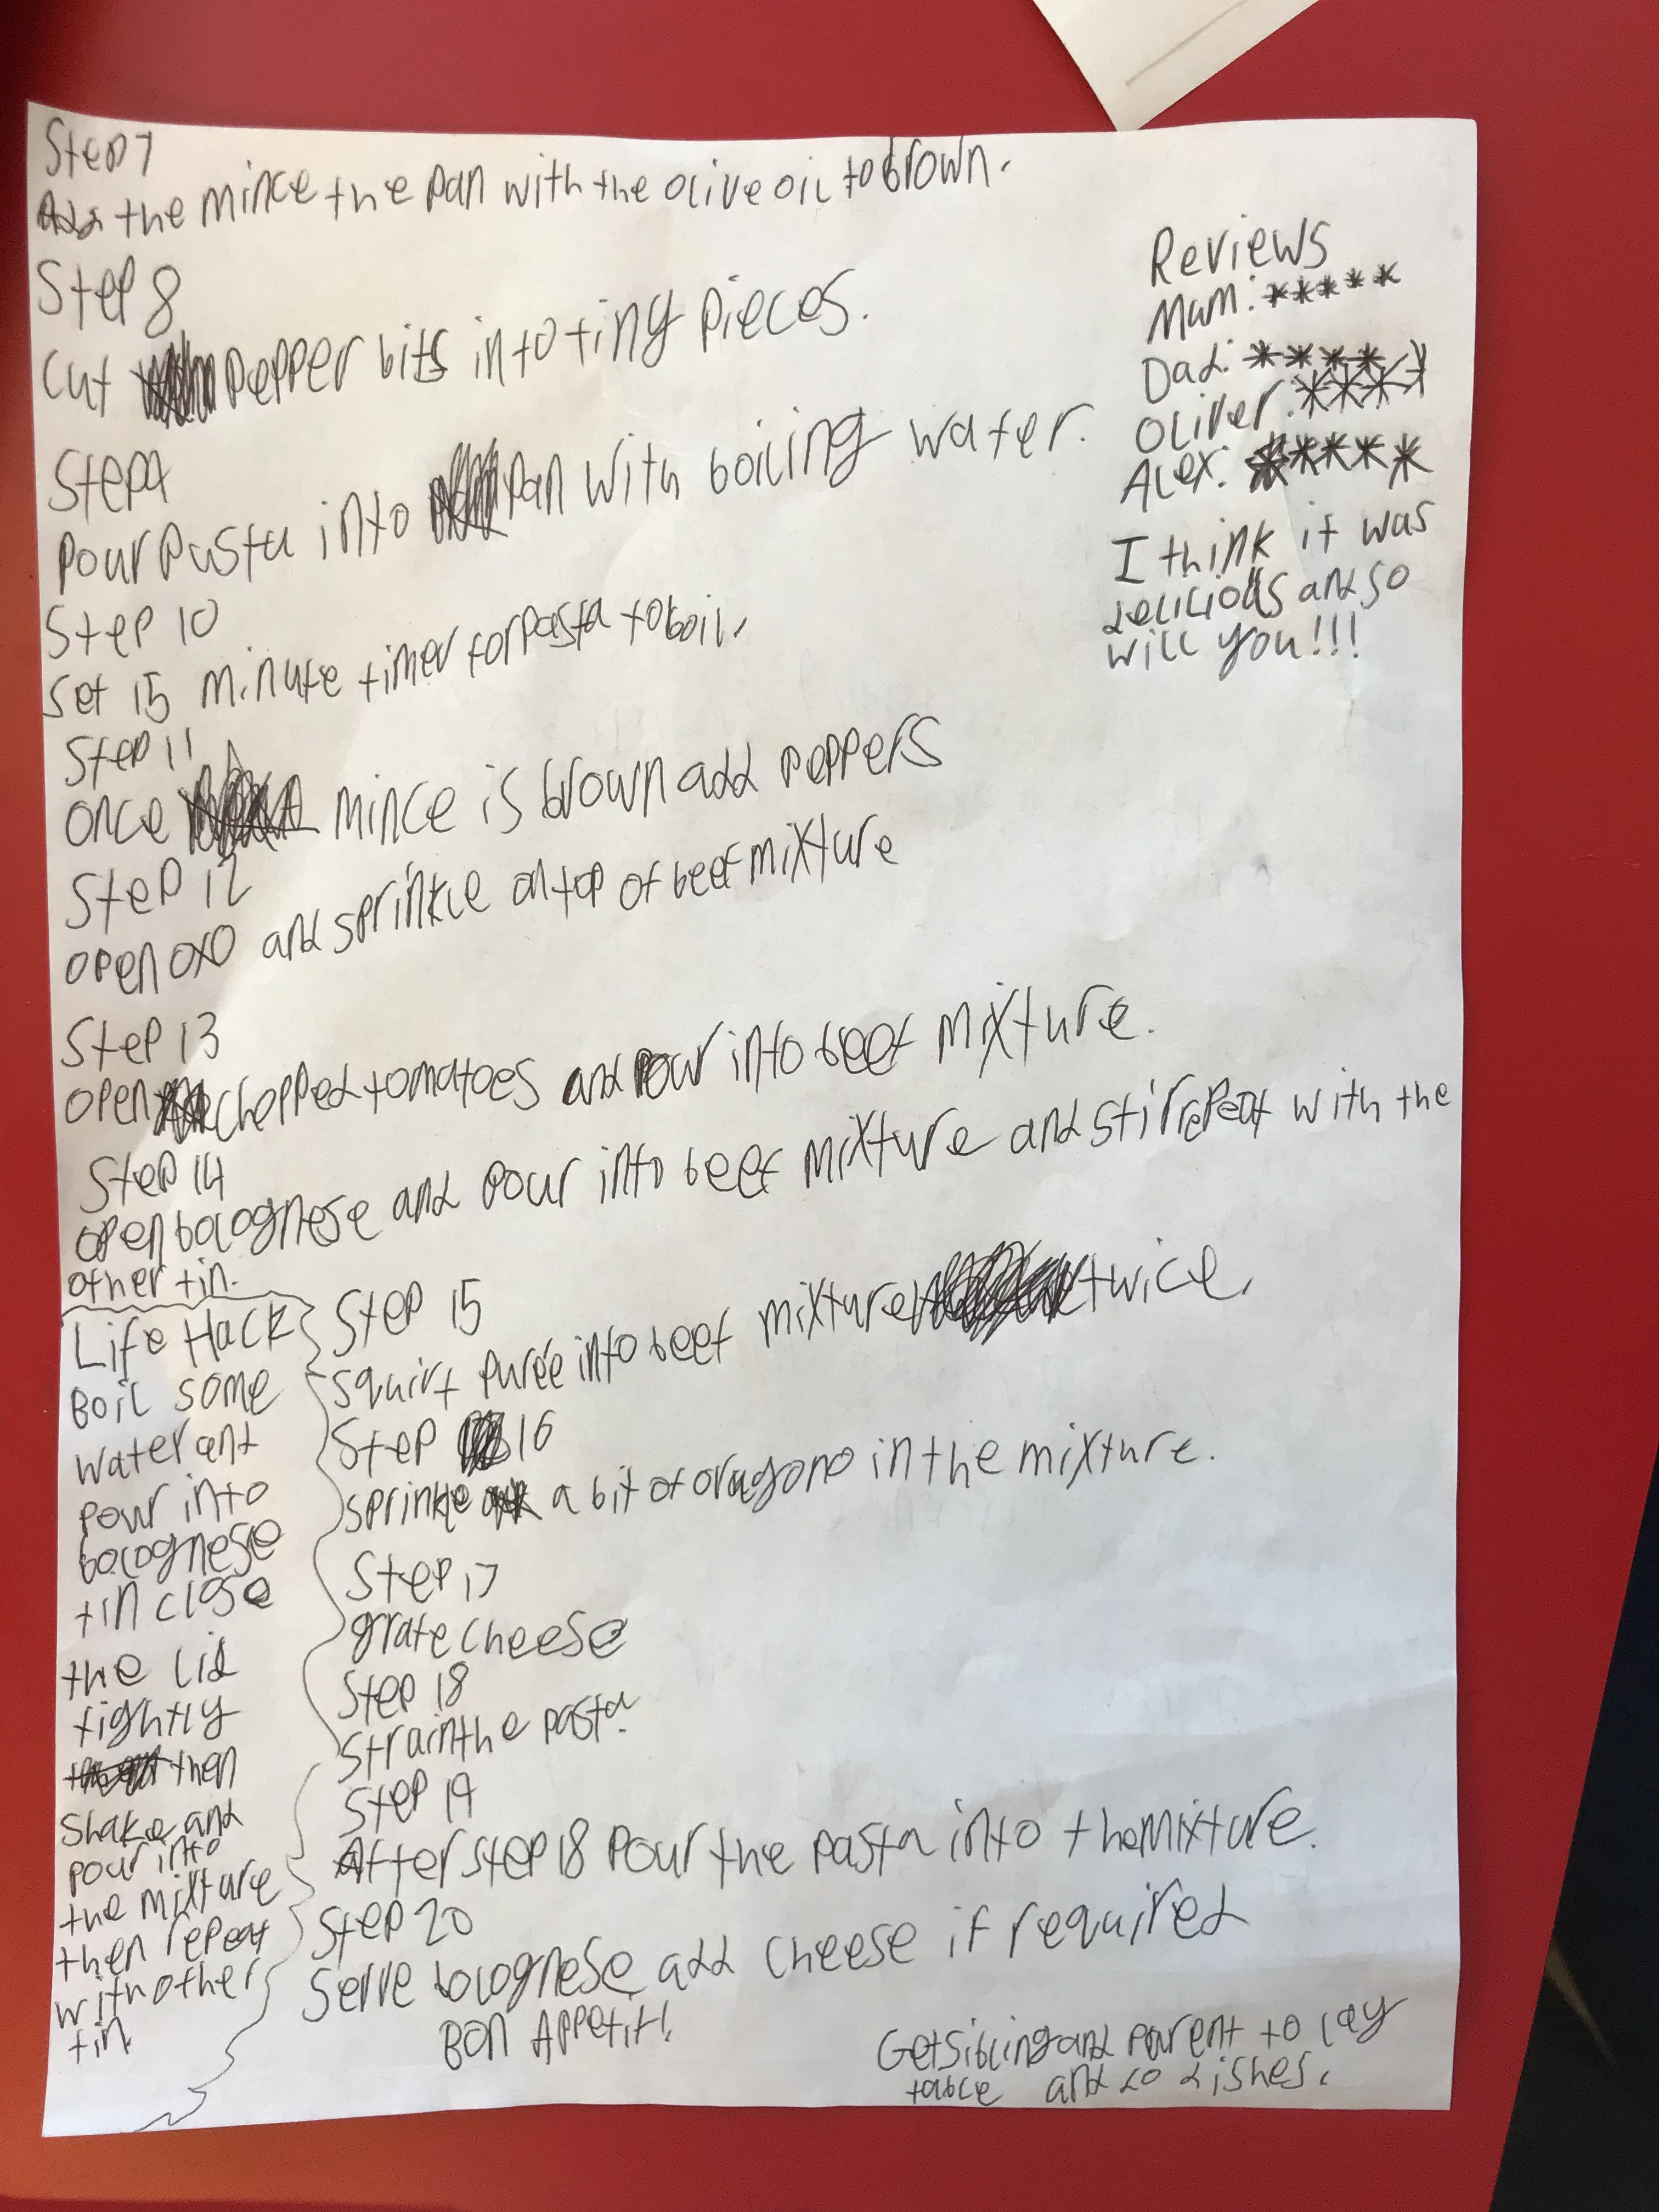 Step 7
Add the mince the pan with the olive oil to brown.
Step 8
Cut pepper bits into tiny pieces.
Step 9
Pour Pasta into pan with boiling water.
Step 10
Set 15 minute timer for pasta to boil.
Step 11
Once mince is brown add peppers
Step 12
open oxo and sprinkle on top of beef mixture
Step 13
open chopped tomatoes and pour into beef mixture.
Step 14
open bolognese and pour into beef mixture and stir repeat with the
other tin.
Step 15
Squirt purée into beef mixture twice.
Step 16
sprinkle a bit of oragono in the mixture.
Step 17
grate cheese
Step 18
Strain the pasta.
Step 19
After step 18 pour the pasta into the mixture.
Step 20
Serve bolognese add cheese if required
Bon Appetit!
Life Hack
Boil some
water ant
pour into
bolognese
tin close
the lid
tightly
then
shake and
pour into
the mixture
then repeat
with other
tin.
Reviews
Mum: *****
Dad: *****
Oliver: ****
Alex: *****
I think it was
delicious and so
will you!!!
Get sibling and parent to lay
table and do dishes.